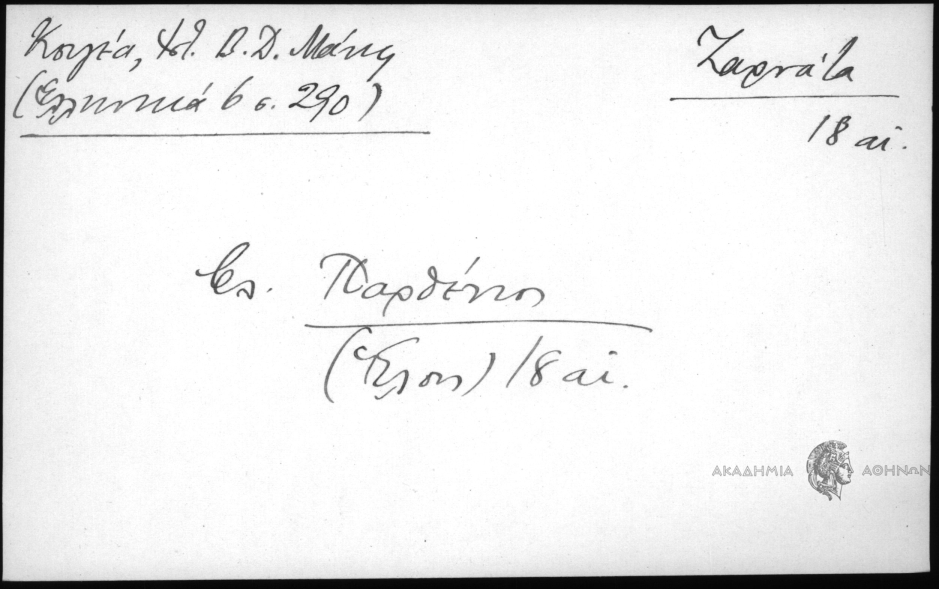 Κουγέα, Ἱστ. Β.Δ. Μάνης
(Ἑλληνικά 6 σ. 290)
Ζαρνάτα
18 αἰ.
Ἐπ. Παρθένιος
(Ἕλους) 18 αἰ.
ΑΚΑΔΗΜΙΑ ΑΘΗΝΩΝ